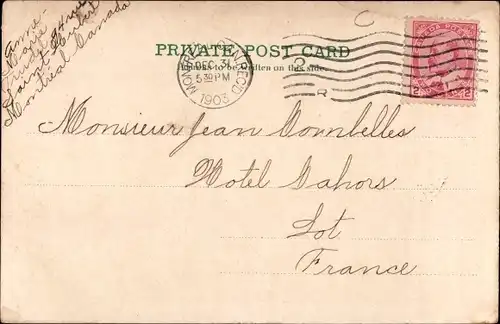 PRIVATE POST CARD
Address to be written on this side.
MONTREAL
DEC 31
5 30 PM
1903
2
R
CANADA POSTAGE
2 2
Anne-
Marie
94 rue
Saint Hubert
Montreal Canada
Monsieur Jean
Hotel Cahors
Lot
France